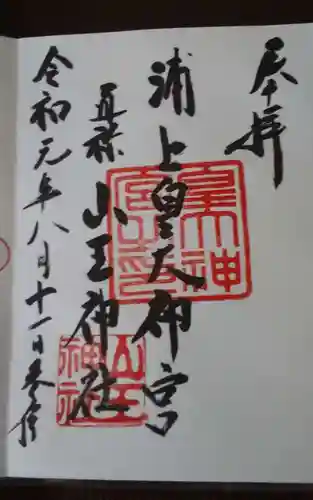 奉拝
浦上皇大神宮
直禄 山王神社
令和元年八月十一日参拝
皇大神宮之印
山王神社